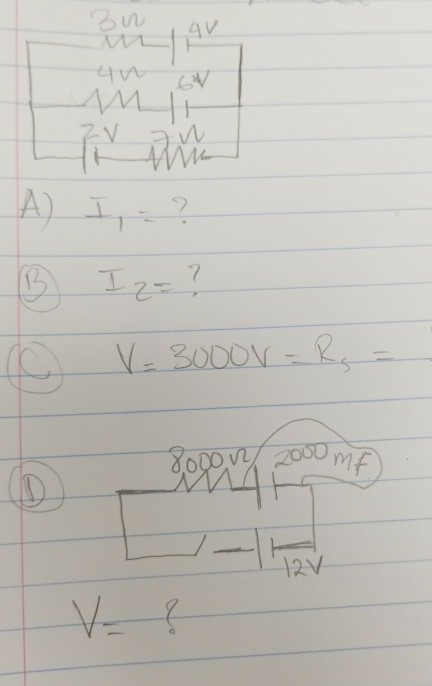 3Ω 4V
4Ω 6V
2V 7Ω
A) I₁ = ?
B I₂ = ?
C V = 3000V = Rₛ =
D 8000Ω 2000 mF
12V
V = ?